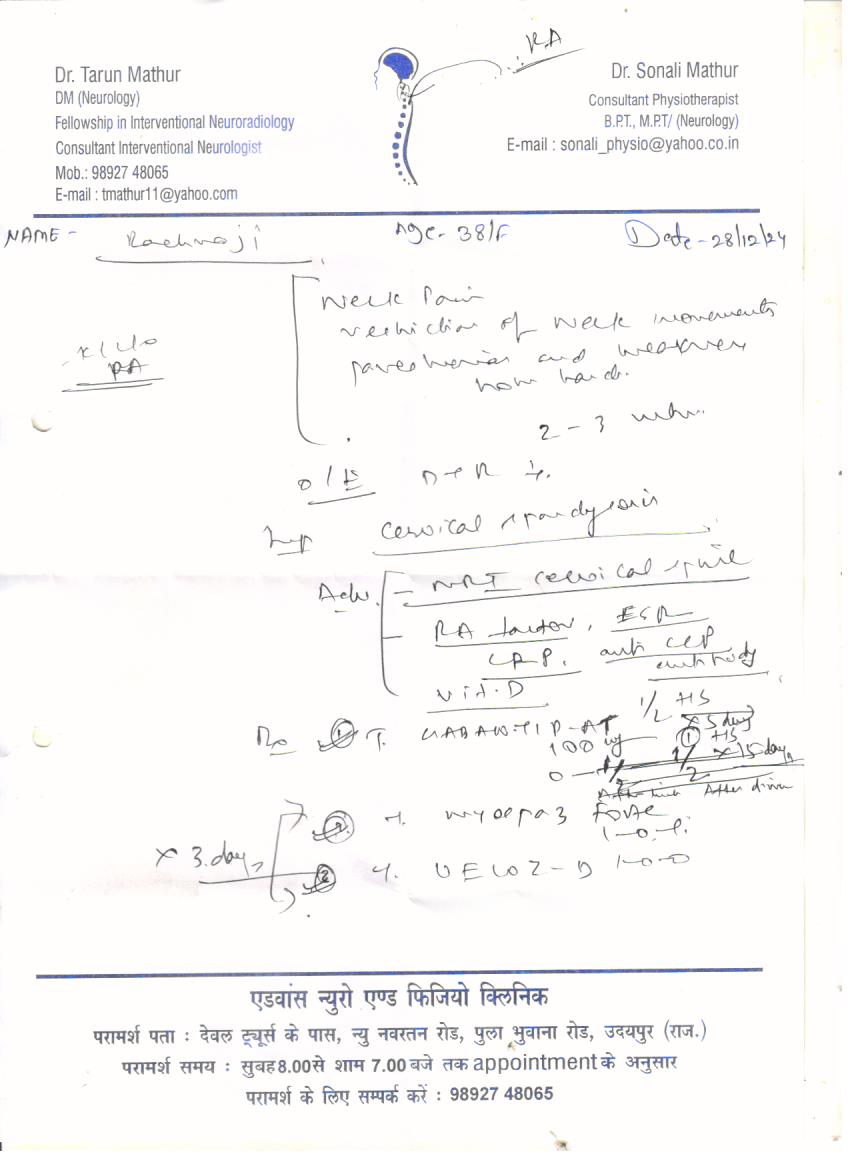 RA
Dr. Tarun Mathur
DM (Neurology)
Fellowship in Interventional Neuroradiology
Consultant Interventional Neurologist
Mob.: 98927 48065
E-mail : tmathur11@yahoo.com
Dr. Sonali Mathur
Consultant Physiotherapist
B.P.T., M.P.T/ (Neurology)
E-mail : sonali_physio@yahoo.co.in
NAME - Rachnaji Age - 38/F Date - 28/12/24
Neck Pain
restriction of Neck movements
paresthesias and weakness
hand.
RA
2 - 3
O/E
Imp Cervical spondylosis
Adv. - MRI cervical spine
- RA factor, ESR
CRP. anti CCP
antibody
Vit. D
1/2 HS
x 5 days
Rx 1 T. GABANTIP-AT
100 mg 1 HS
x 15 days
After dinner
2 T. myospaz Forte
1-0-1
x 3 days
3 T. VELOZ-D 1-0-0
एडवांस न्युरो एण्ड फिजियो क्लिनिक
परामर्श पता : देवल ट्यूर्स के पास, न्यु नवरतन रोड, पुला भुवाना रोड, उदयपुर (राज.)
परामर्श समय : सुबह 8.00 से शाम 7.00 बजे तक appointment के अनुसार
परामर्श के लिए सम्पर्क करें : 98927 48065